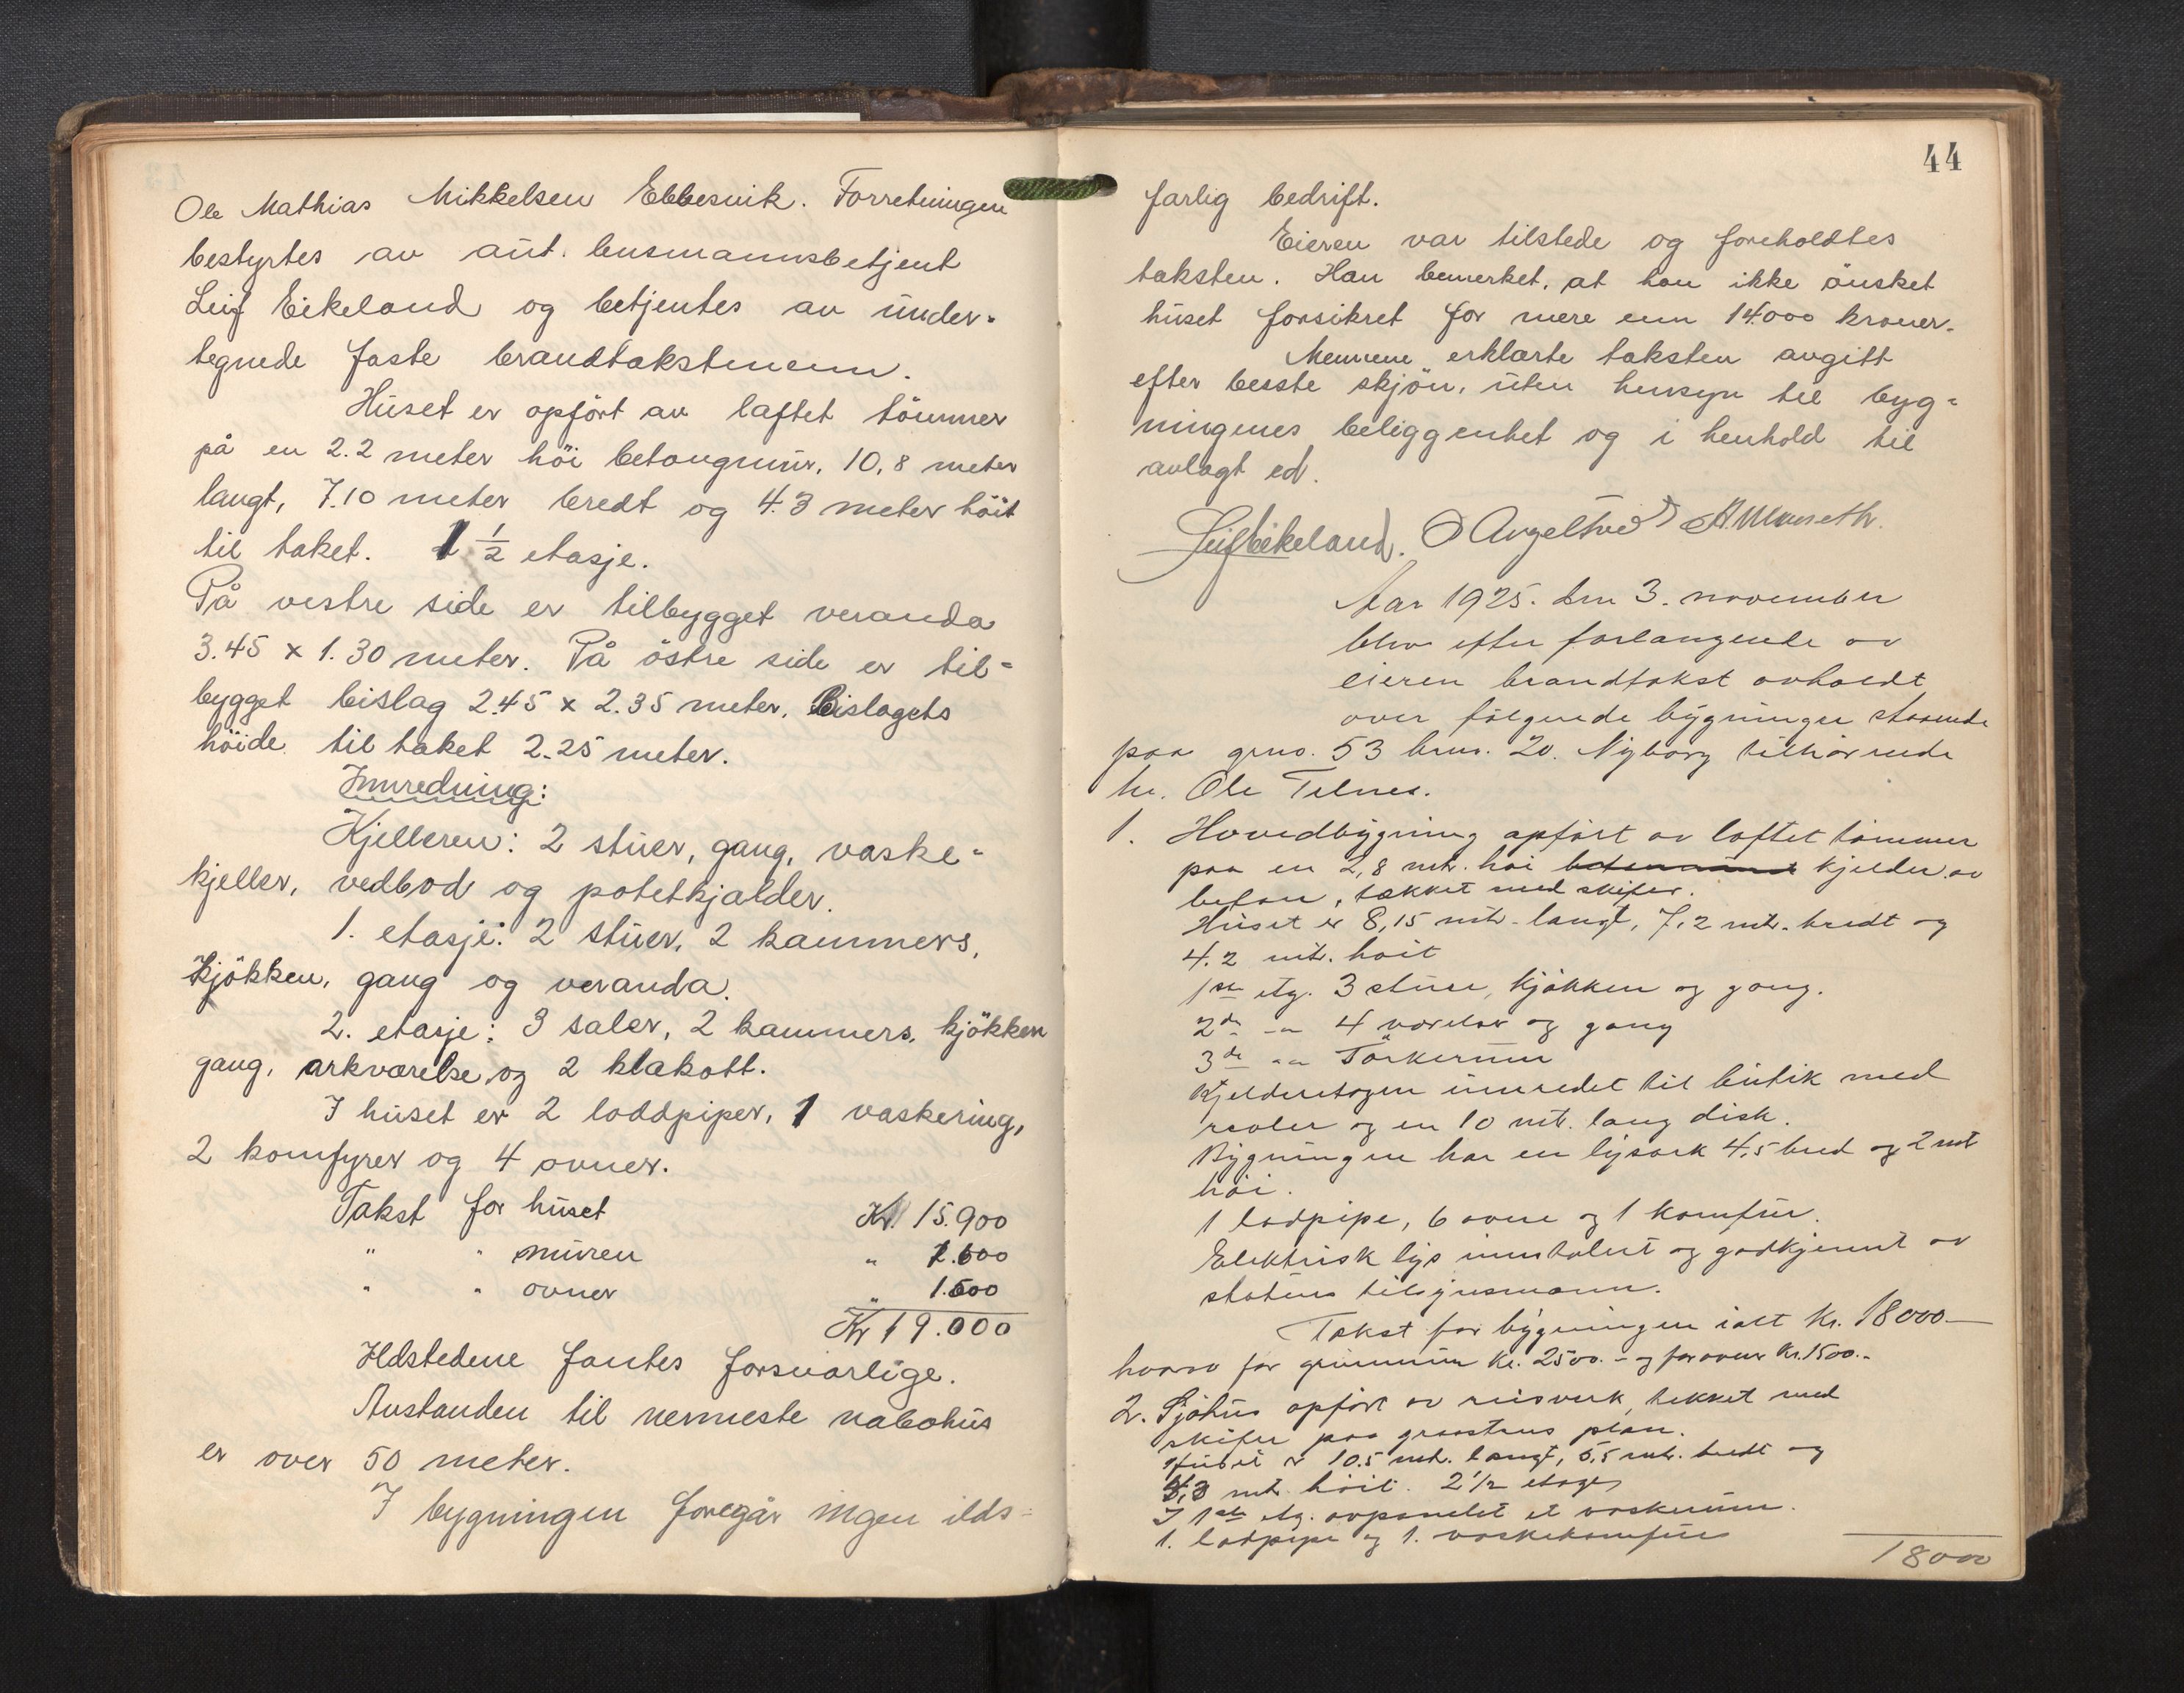 Ole Mathias Mikkelsen Ebbesvik. Forretningen
bestyrtes av aut. lensmannsbetjent
Leif Eikeland og betjentes av under-
tegnede faste brandtakstmenn.
Huset er opført av laftet tömmer
på en 2.2 meter höi betongmur, 10,8 meter
langt, 7.10 meter bredt og 4.3 meter höit
til taket. 1 1/2 etasje.
På vestre side er tilbygget veranda
3.45 x 1.30 meter. På östre side er til-
bygget bislag 2.45 x 2.35 meter. Bislagets
höide til taket 2.25 meter.
Innredning:
Kjelleren: 2 stuer, gang, vaske-
kjeller, vedbod og potetkjalder.
1. etasje: 2 stuer, 2 kammers,
Kjökken, gang og veranda.
2. etasje: 3 saler, 2 kammers, kjökken
gang, arkværelse og 2 klakott.
I huset er 2 loddpiper, 1 vaskering,
2 komfyrer og 4 ovner.
Takst for huset Kr. 15.900
" " muren " 1.600
" " ovner " 1.500
Kr 19.000
Ildstedene fantes forsvarlige.
Avstanden til nermeste nabohus
er over 50 meter.
I bygningen foregår ingen ilds-
44
farlig bedrift.
Eieren var tilstede og foreholdtes
taksten. Han bemerket, at han ikke önsket
huset forsikret for mere enn 14000 kroner.
Mennene erklærte taksten avgitt
efter besste skjön, uten hensyn til byg-
ningenes beliggenhet og i henhold til
avlagt ed.
Leif Eikeland. O Angeltveit
Aar 1925. den 3. november
blev efter forlangende av
eieren brandtakst avholdt
over følgende bygninger staaende
paa grno. 53 brno. 20. Nyborg tilhørende
hr. Ole Telnes.
1. Hovedbygning opført av loftet tømmer
paa en 2,8 mtr. høi kjelder av
beton, tækket med skifer.
Huset er 8,15 mtr. langt, 7,2 mtr. bredt og
4.2 mtr. høit
1ste etg. 3 stuer, kjøkken og gang.
2de -"- 4 værelser og gang
3de -"- Törkerum
Kjelderetagen innredet til butik med
reoler og en 10 mtr. lang disk.
Bygningen har en lysark 4,5 bred og 2 mt
høi.
1 lodpipe, 6 ovne og 1 komfur.
Elektrisk lys innstalert og godkjennt av
statens tilsynsmann.
Takst for bygningen ialt Kr. 18000.—
hvorav for grunmur Kr. 2500.- og for ovner Kr. 1500.-
2. Sjøhus opført av reisverk, tekket med
skifer paa graastens plan.
Huset er 10.5 mtr. langt, 5,5 mtr. bredt og
3,3 mtr. høit. 2 1/2 etage
I 1ste etg. avpanelet et vaskerum.
1. lodpipe og 1. vaskekomfur
18000